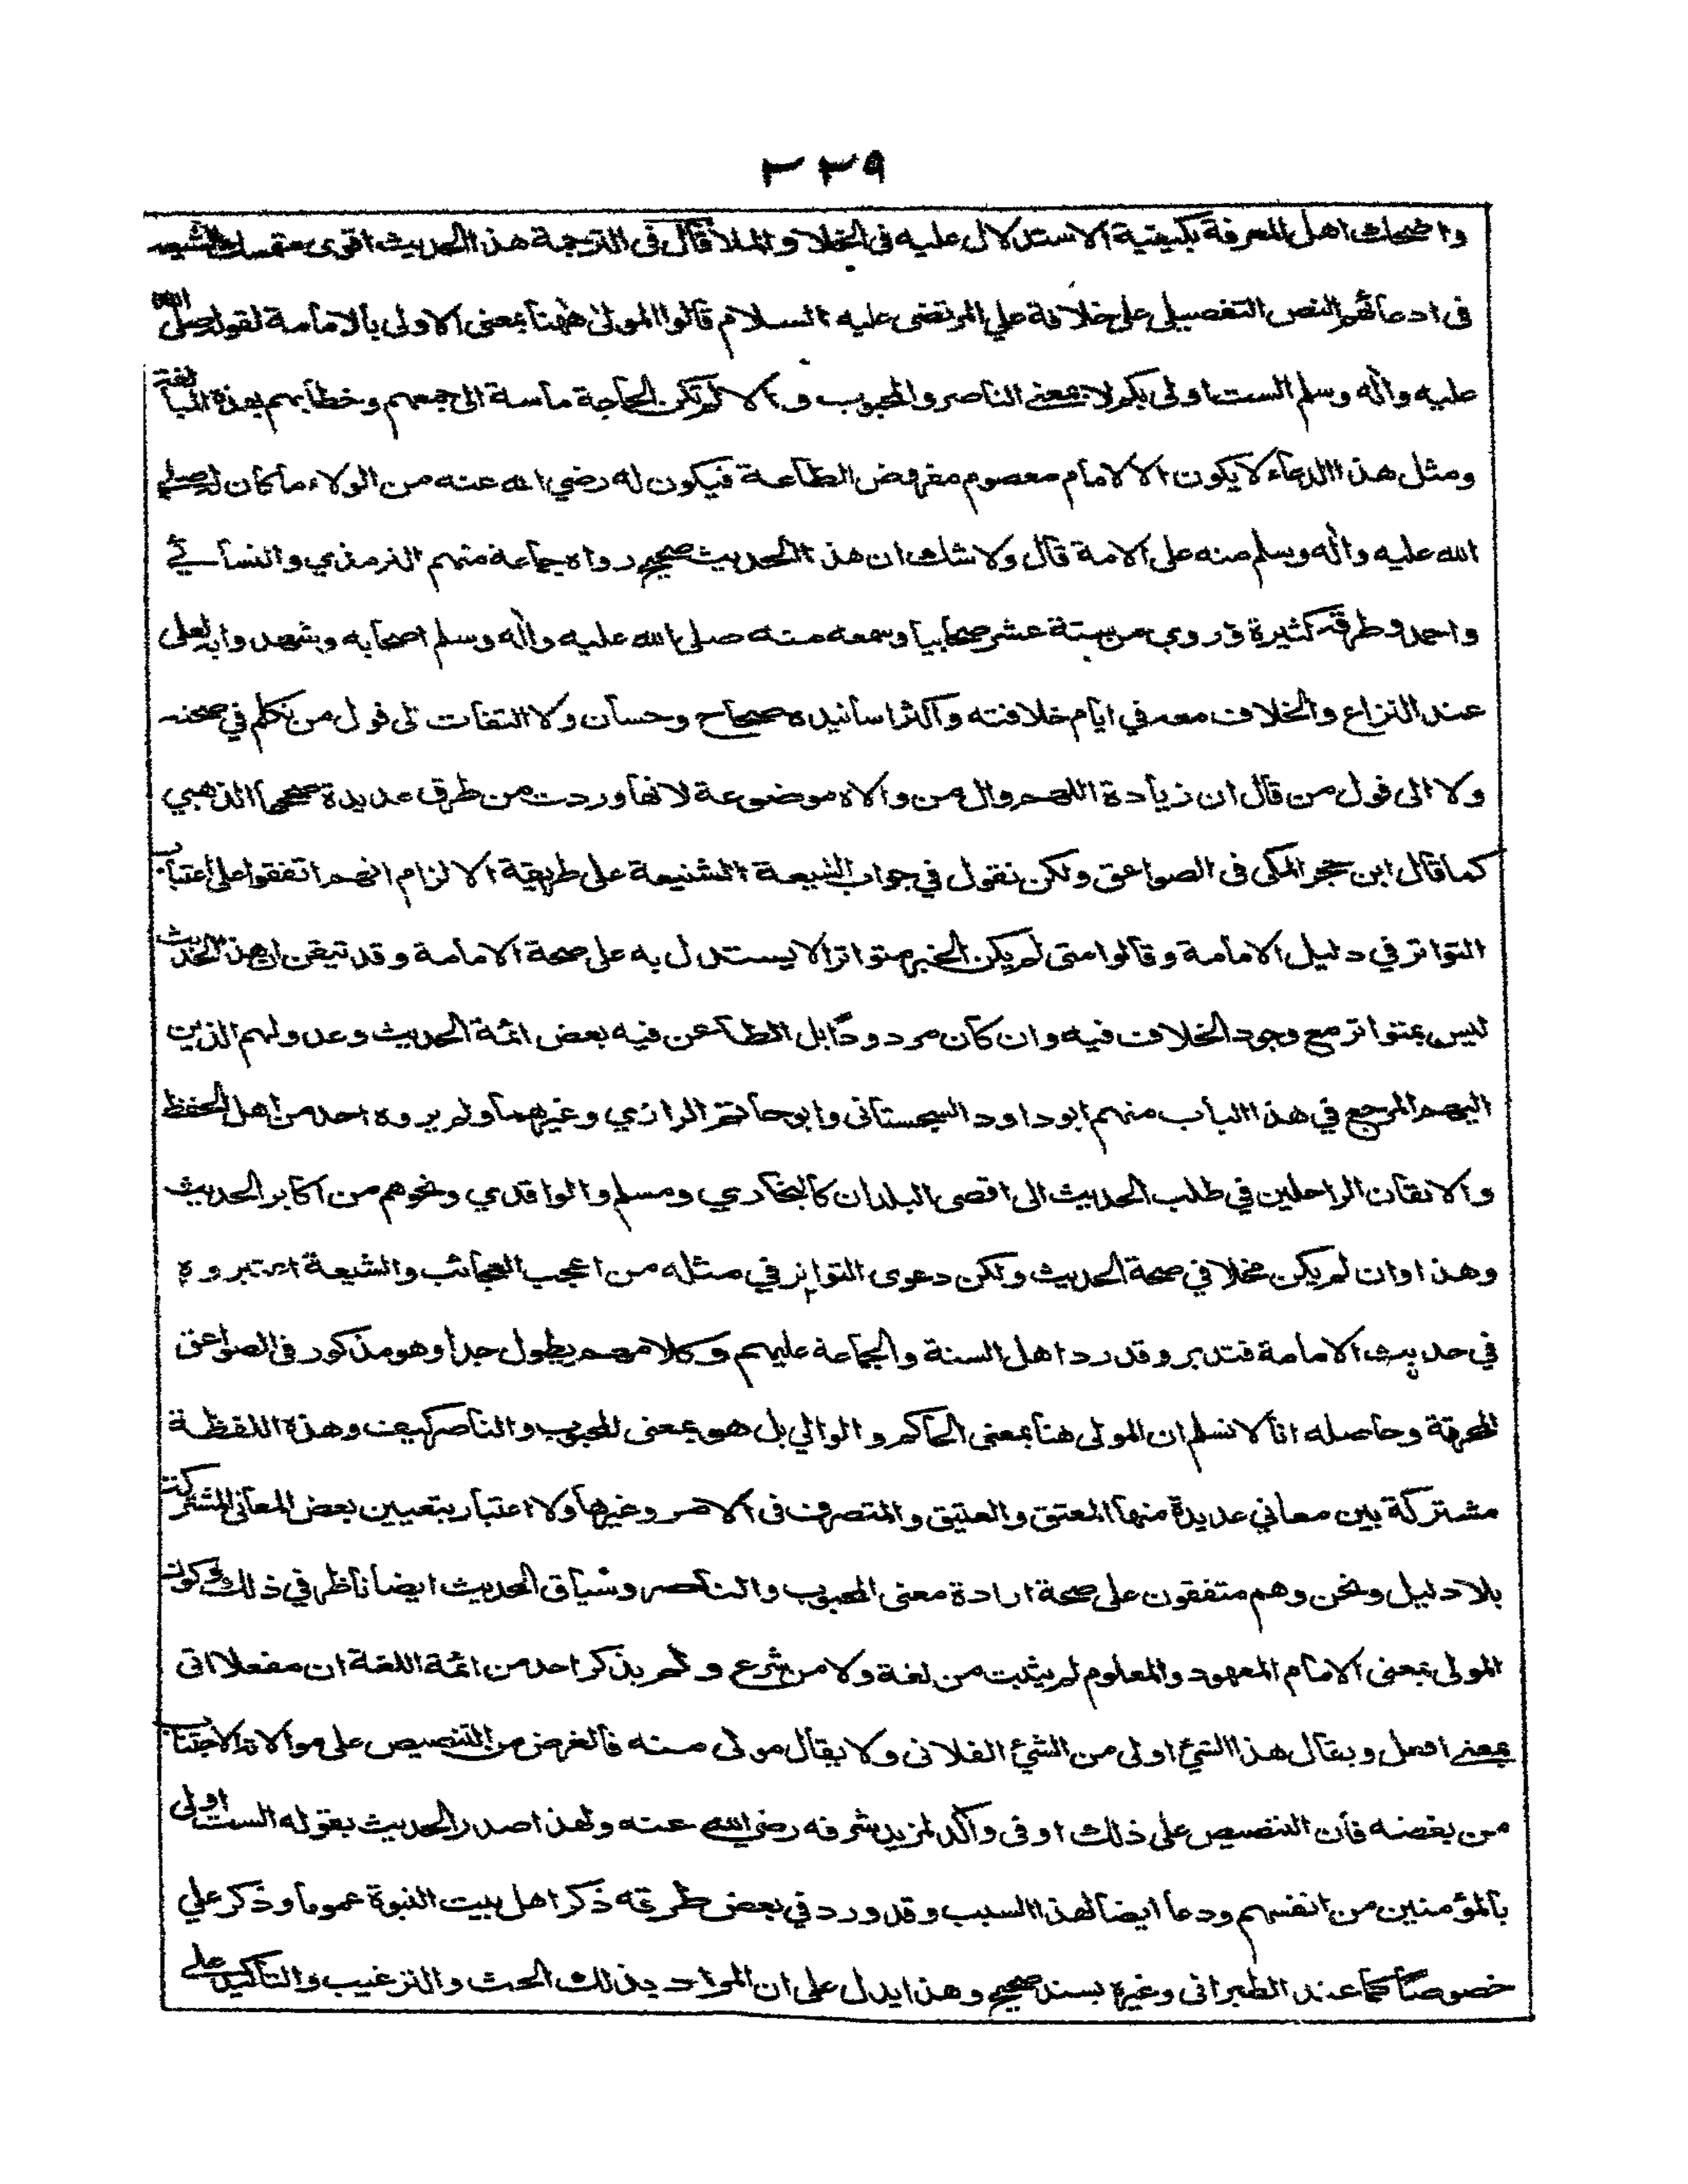 ٢٢٩
واضحاك اهل المعرفة بكيفية الاستدلال عليه فى الخلا والملا قال فى الترجمة هذا الحديث اقوى متمسك الشيعه
فى ادعائهم النص التفصيلى على خلافة علي المرتضى عليه السلام قالوا المولى ههنا بمعنى الاولى بالامامة لقوله صلى الله
عليه واله وسلم الست اولى بكم لا بمعنى الناصر والمحبوب والا لم تكن الحاجة ماسة الى جمعهم وخطابهم بهذه المبالغة
ومثل هذا الدعاء لا يكون الا لامام معصوم مفروض الطاعة فيكون له رضي الله عنه من الولاء ما كان له صلى
الله عليه واله وسلم منه على الامة قال ولا شك ان هذا الحديث صحيح رواه جماعة منهم الترمذي والنسائي
واحمد وطرقه كثيرة وروي من ستة عشر صحابيا وسمعه منه صلى الله عليه واله وسلم اصحابه وشهدوا به لعلى
عند النزاع والخلاف معه في ايام خلافته واكثر اسانيده صحاح وحسان ولا التفات الى قول من تكلم في صحته
ولا الى قول من قال ان زيادة اللهم وال من والاه موضوعة لانها وردت من طرق عديدة صححها الذهبي
كما قال ابن حجر المكى فى الصواعق ولكن نقول في جواب الشيعة الشنيعة على طريقة الالزام انهم اتفقوا على اعتبار
التواتر في دليل الامامة وقالوا متى لم يكن الخبر متواترا لا يستدل به على صحة الامامة وقد تيقن ان هذا الحديث
ليس بمتواتر مع وجود الخلاف فيه وان كان مردودا بل الطاعن فيه بعض ائمة الحديث وعدولهم الذين
اليهم المرجع في هذا الباب منهم ابو داود السجستانى وابو حاتم الرازي وغيرهما ولم يروه احد من اهل الحفظ
والاتقان الراحلين في طلب الحديث الى اقصى البلدان كالبخاري ومسلم والواقدي ونحوهم من اكابر الحديث
وهذا وان لم يكن مخلا في صحة الحديث ولكن دعوى التواتر في مثله من اعجب العجائب والشيعة اعتبروه
في حديث الامامة فتدبر وقد رد اهل السنة والجماعة عليهم وكلامهم يطول جدا وهو مذكور فى الصواعق
المحرقة وحاصله انا لا نسلم ان المولى هنا بمعنى الحاكم والوالي بل هو بمعنى المحبوب والناصر كيف وهذه اللفظة
مشتركة بين معاني عديدة منها المعتق والعتيق والمتصرف فى الامر وغيرها ولا اعتبار بتعيين بعض المعانى المشتركة
بلا دليل ونحن وهم متفقون على صحة ارادة معنى المحبوب والناصر وسياق الحديث ايضا ناظر في ذلك وكون
المولى بمعنى الامام المعهود والمعلوم لم يثبت من لغة ولا من شرع ولم يذكر احد من ائمة اللغة ان مفعلا اتى
بمعنى افعل ويقال هذا الشئ اولى من الشئ الفلانى ولا يقال مولى منه فالغرض من التنصيص على موالاته الاجتناب
من بغضه فان التنصيص على ذلك اوفى واكد لمزيد شرفه رضي الله عنه ولهذا صدر الحديث بقوله الست اولى
بالمؤمنين من انفسهم ودعا ايضا لهذا السبب وقد ورد في بعض طرقه ذكر اهل بيت النبوة عموما وذكر علي
خصوصا كما عند الطبرانى وغيره بسند صحيح وهذا يدل على ان المراد بذلك الحث والترغيب والتاكيد على